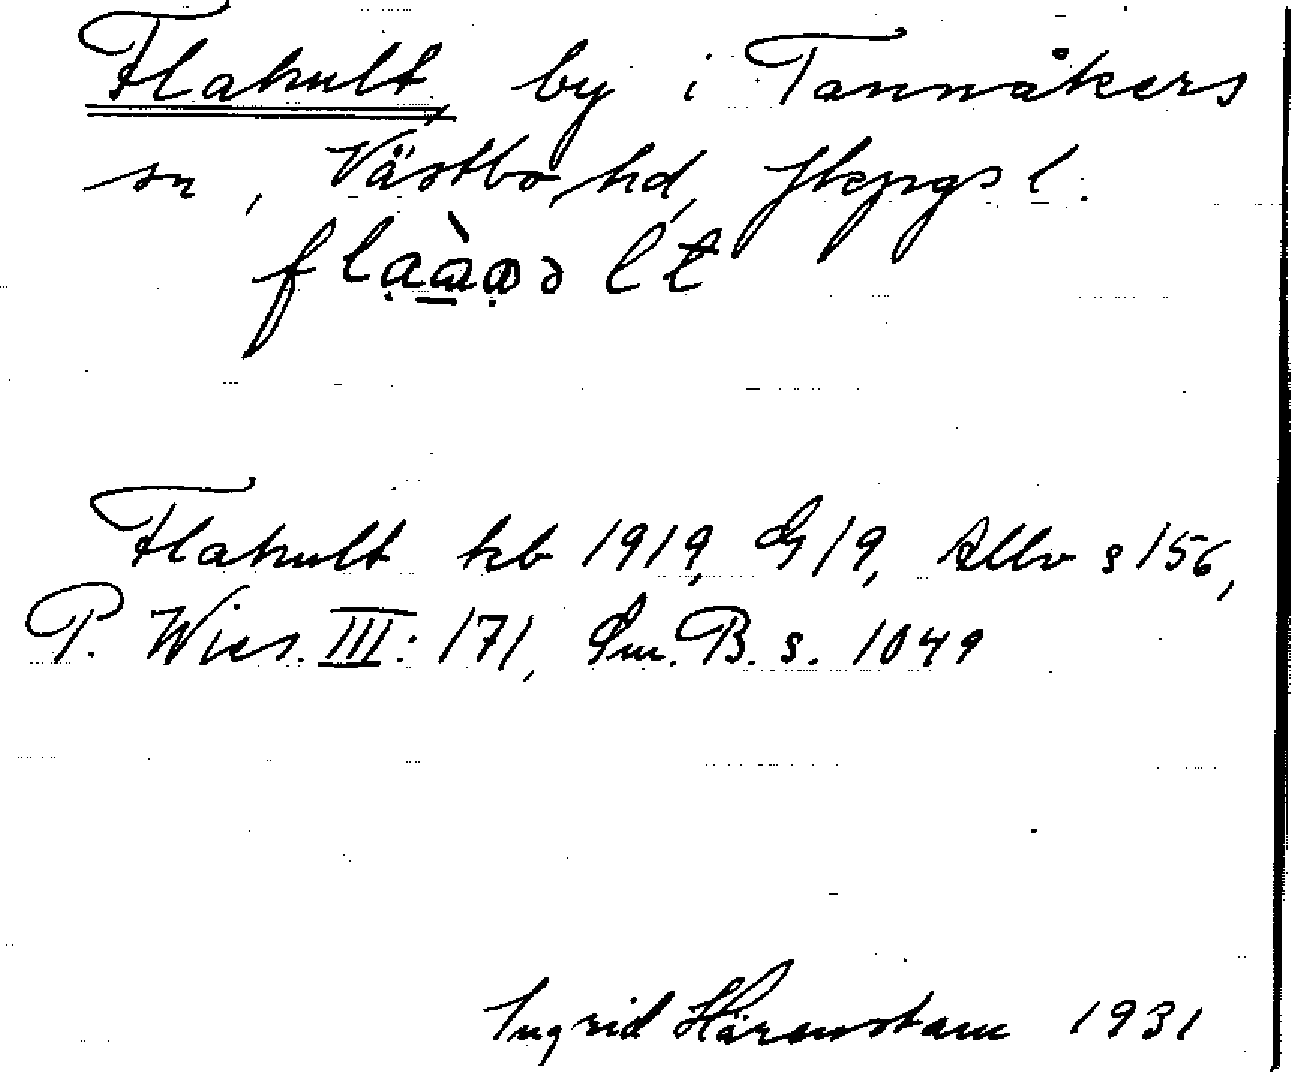 Flahult by i Tannåkers
sn, Västbo hd, Jkpgs l.
Flahult kb 1919, G 19, Allv s 156,
P. Wies. III: 171, Sm. B. s. 1049
Ingrid Härenstam 1931